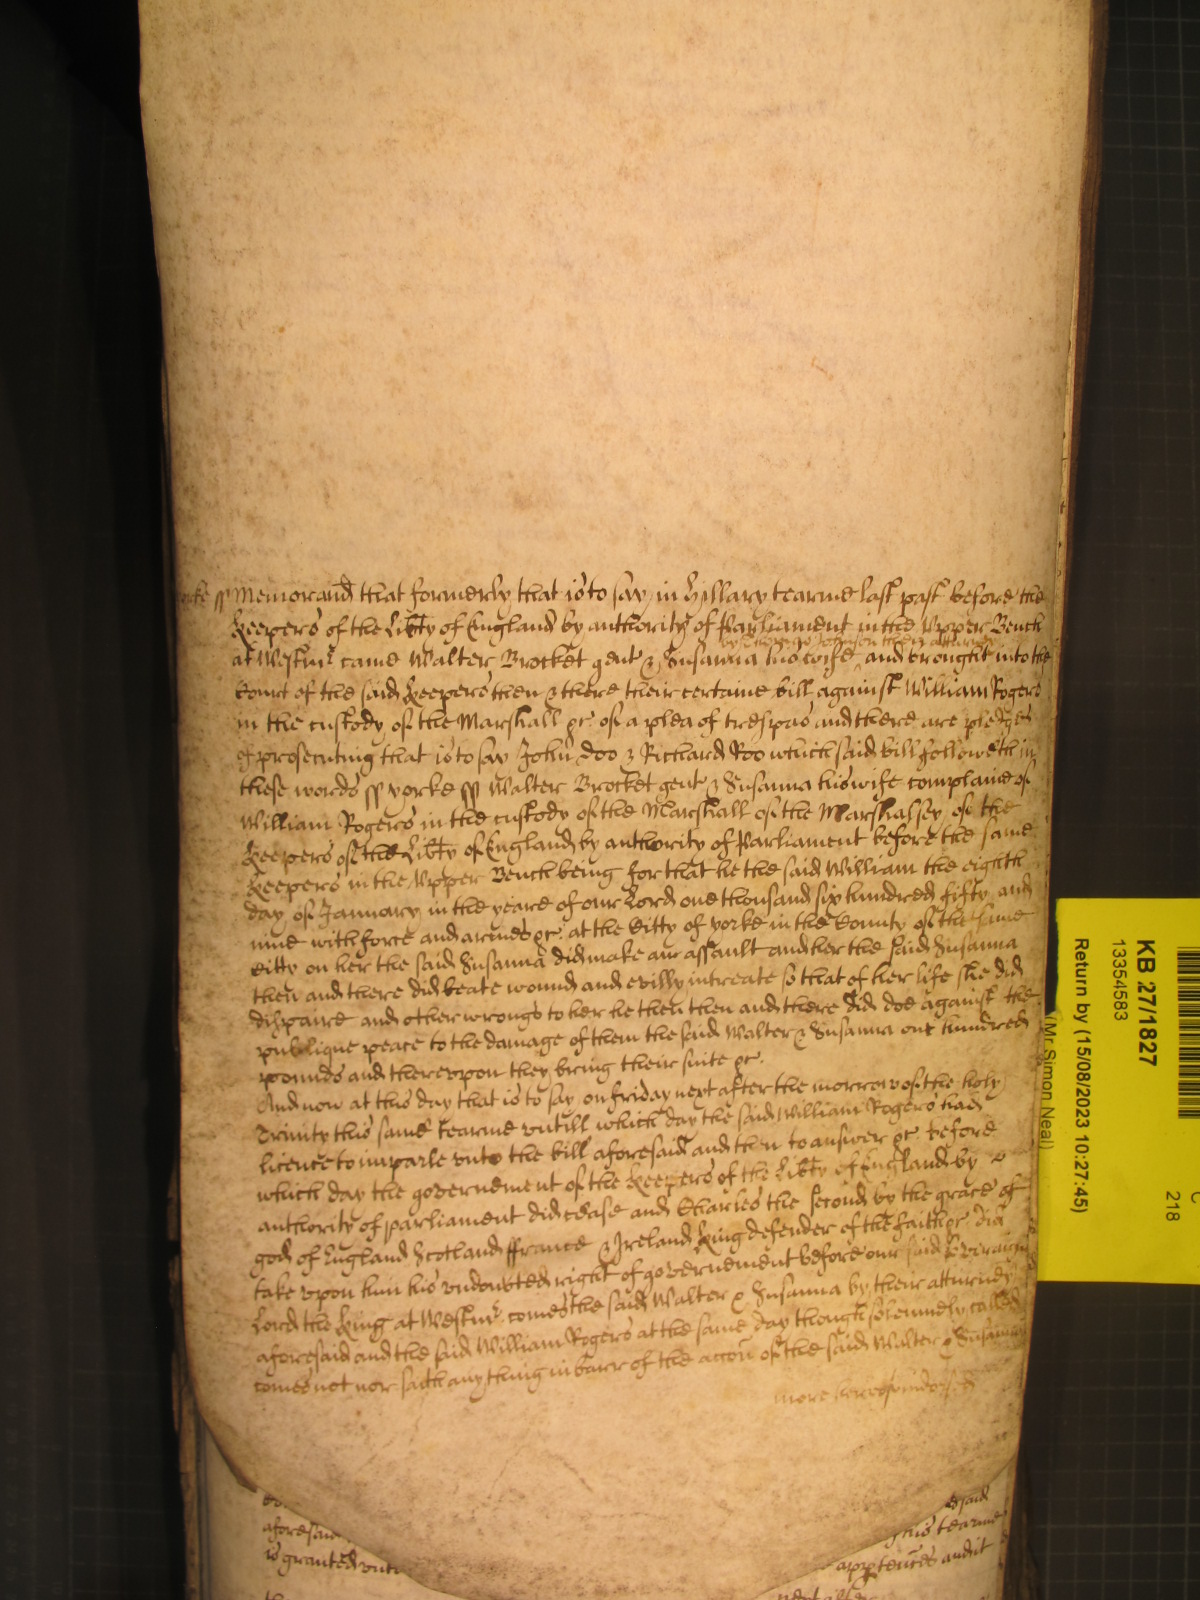 ss Memorand that formerly that is to say in Hillary tearme last past before the
Keepers of the Libty of England by authority of Parliament in the Upper Bench
by Johnson their atturney
at Westmr came Walter Brocket gent & Susanna his wife and brought into the
Court of the said Keepers then & there their certaine bill against William Rogers
in the custody of the Marshall &c of a plea of trespas and there are pledges
of prosecuting that is to say John Doo & Richard Roo which said bill followeth in
these words ss Yorke ss Walter Brocket gent & Susanna his wife complaine of
William Rogers in the custody of the Marshall of the Marshalsey of the
Keepers of the Libty of England by authority of Parliament before the same
Keepers in the Upper Bench being for that he the said William the eighth
day of January in the yeare of our Lord one thousand six hundred fifty and
nine with force and armes &c at the Citty of Yorke in the County of the same
Citty on her the said Susanna did make an assault and her the said Susanna
then and there did beate wound and evilly intreate so that of her life she did
dispaire and other wrongs to her he then then and there did doe against the
publique peace to the damage of them the said Walter & Susanna one hundred
pounds and thereupon they bring their suite &c.
And now at this day that is to say on friday next after the morrow of the holy
Trinity this same tearme untill which day the said William Rogers had
licence to imparle unto the bill aforesaid and then to answer &c before
which day the governement of the Keepers of the Libty of England by
authority of parliament did cease and Charles the second by the grace of
god of England Scotland ffrance & Ireland King defender of the faith &c did
take upon him his undoubted right of governement before our said Soveraigne
Lord the King at Westmr comes the said Walter & Susanna by their atturney
aforesaid and the said William Rogers at the same day though solemnely called
comes not nor saith any thing in barr of the accon of the said Walter & Susanna
more
said
aforesaid this tearme
is granted unto apptences and it
KB 27/1827
13354583
Return by (15/08/2023 10:27:45)
(Mr Simon Neal)
218